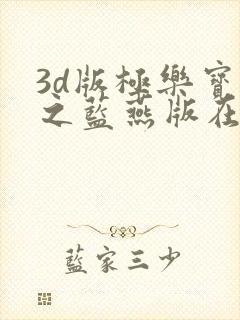 3d版極樂寶
之藍燕版在
藍家三少